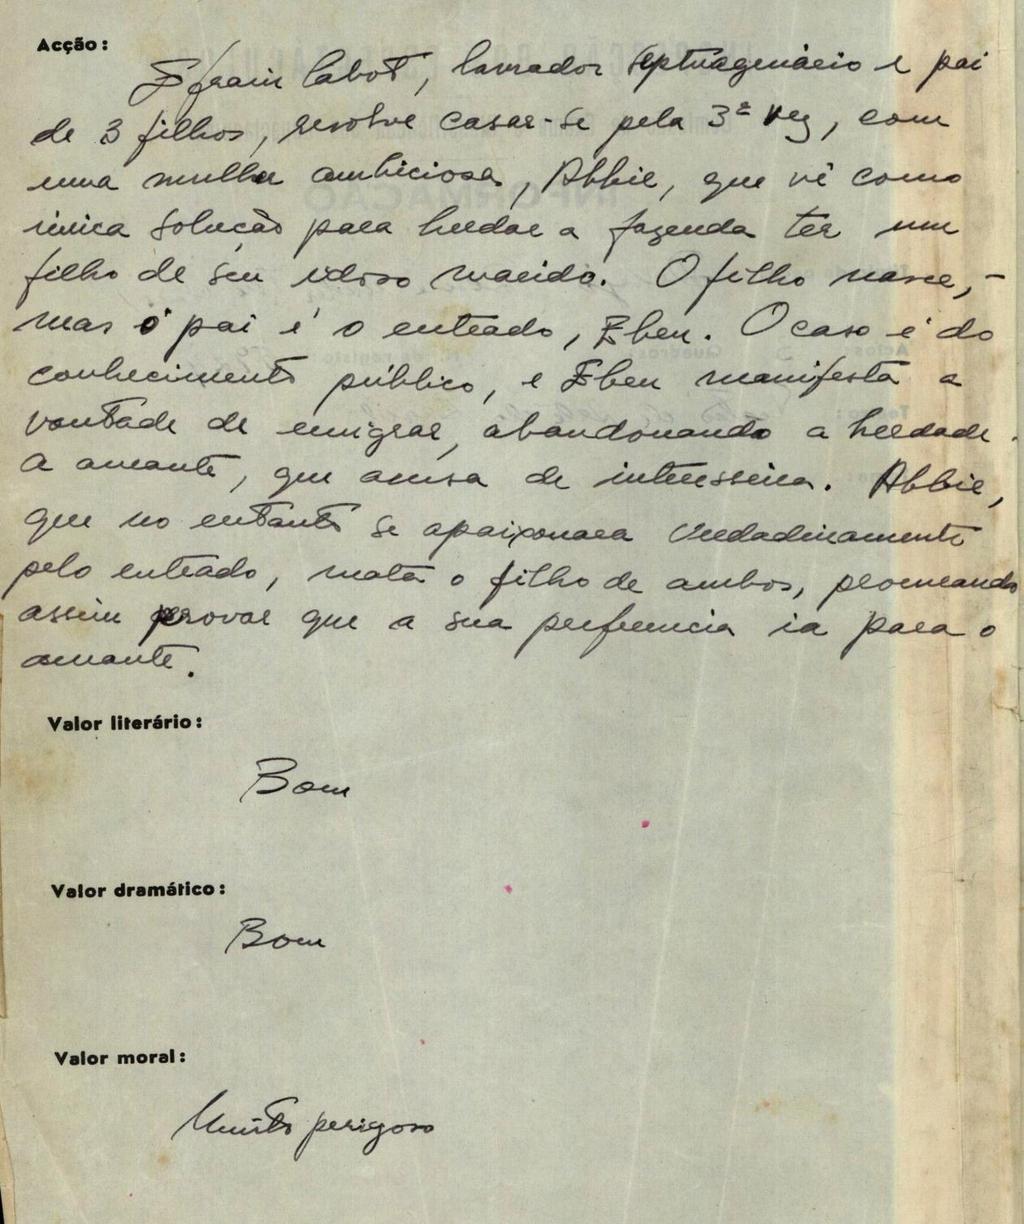 Acção:
Efraim Cabot, lavrador septuagenário e pai
de 3 filhos, resolve casar-se pela 3ª vez, com
uma mulher ambiciosa, Abbie, que vê como
única solução para herdar a fazenda ter um
filho de seu idoso marido. O filho nasce, -
mas o pai é o enteado, Eben. O caso é do
conhecimento público, e Eben manifesta a
vontade de emigrar, abandonando a herdade.
a amante, que acusa de interesseira. Abbie,
que no entanto se apaixonara verdadeiramente
pelo enteado, mata o filho de ambos, procurando
assim provar que a sua preferencia ia para o
amante.
Valor literário:
Bom
Valor dramático:
Bom
Valor moral:
Muito perigoso